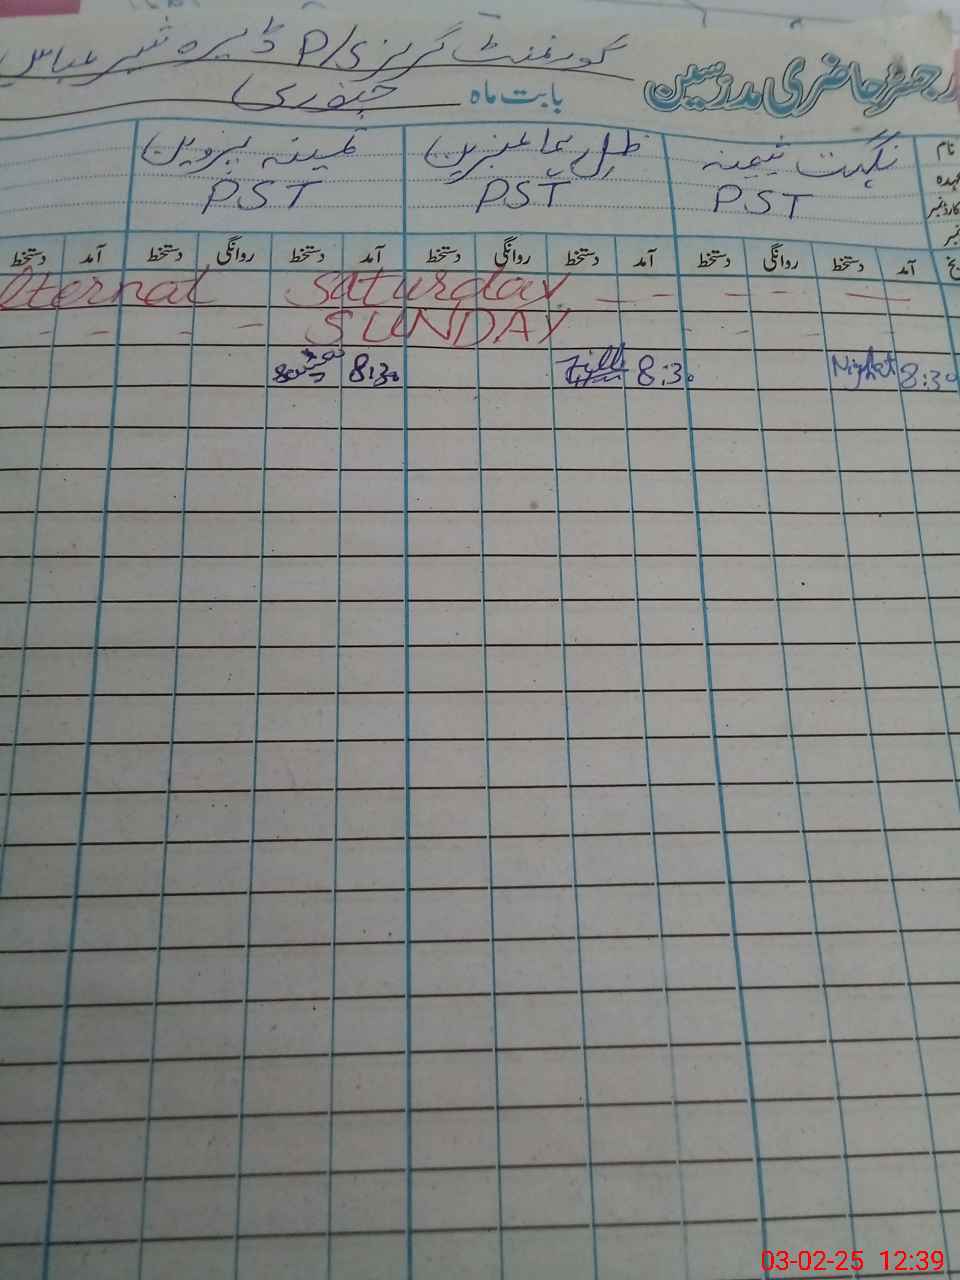 رجسٹر حاضری مدرسین گورنمنٹ گرلز P/S ڈیرہ شبیر عباس
بابت ماہ جنوری
نام نگہت ثمینہ ظل ہما عنبرین ثمینہ پروین
عہدہ PST PST PST
کارڈ نمبر
آمد دستخط روانگی دستخط آمد دستخط روانگی دستخط آمد دستخط روانگی دستخط آمد دستخط
lternal Saturday
SUNDAY
8:30 Nighat 8:30 Zill 8:30
03-02-25 12:39